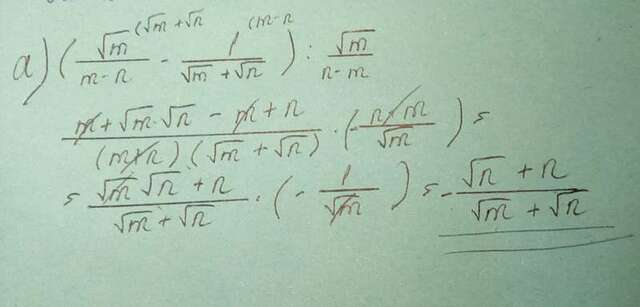 а) (√m^(√m + √n / m - n - 1^(m - n / √m + √n) : √m / n - m
m + √m·√n - m + n / (m - n)(√m + √n) · (- n - m / √m) =
= √m √n + n / √m + √n · (- 1 / √m) = - √n + n / √m + √n